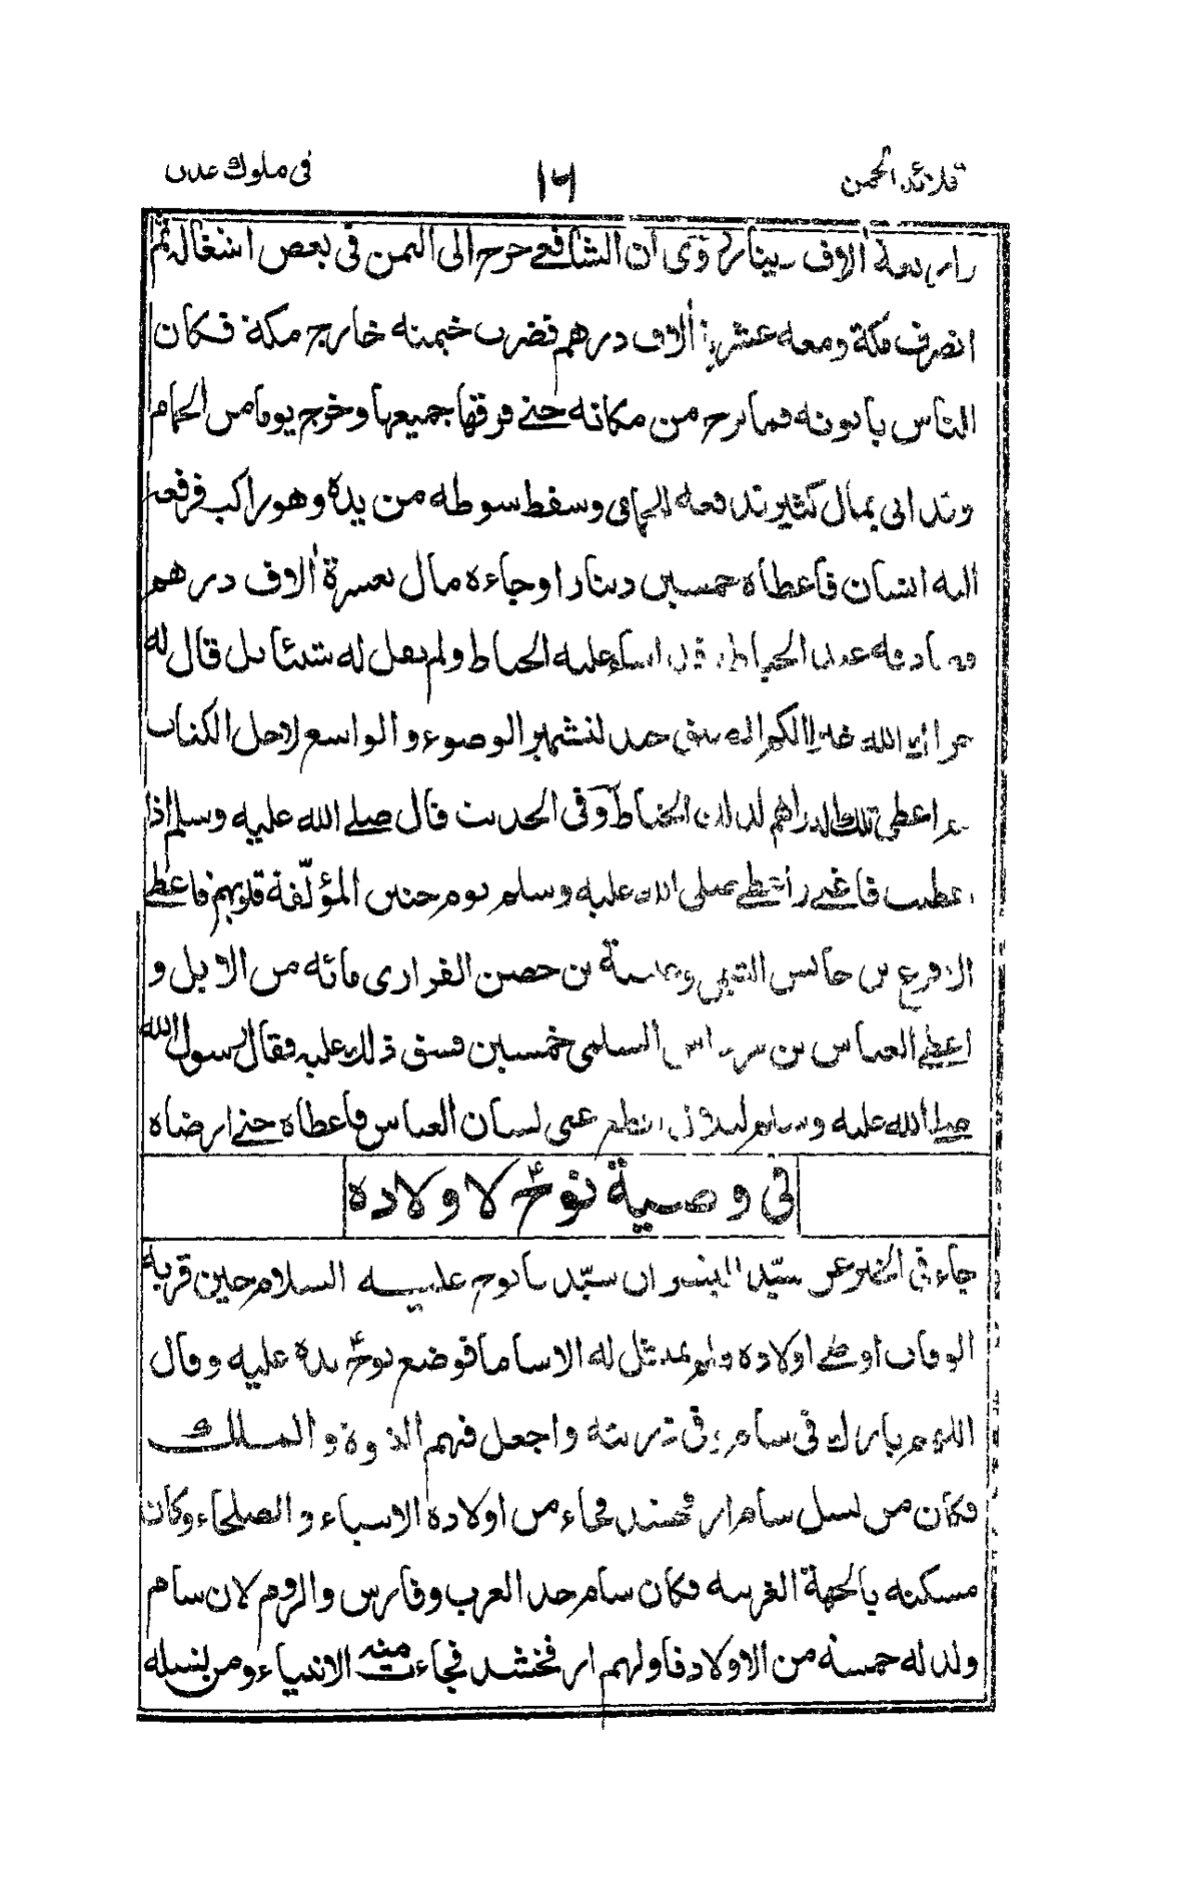 فى ملوك عدن
١٦
قلائد الجمن
باربعة ألاف دينار روى ان الشافعى خرج الى اليمن فى بعض اشغاله ثم
انصرف مكة ومعه عشرة ألاف درهم فضرب خيمته خارج مكة فكان
الناس ياتونه فما برح من مكانه حتى فرقها جميعها وخرج يوما من الحمام
وقد اتى بمال كثير فدفعه للحمامى وسقط سوطه من يده وهو راكب فرفعه
اليه انسان فاعطاه خمسين دينارا وجاءه مال بعشرة ألاف درهم
الخياط اساء عليه الخياط ولم يقل له شيئا بل قال له
جزاك الله خيرا الكم الضيق جيد لتشمير الوضوء والواسع لاجل الكتاب
اعطى تلك الدراهم الخياط وفى الحديث قال صلى الله عليه وسلم اذا
اعطيت فاغنى اعطى صلى الله عليه وسلم يوم حنين المؤلّفة قلوبهم فاعطى
الاقرع بن حابس التميمى وعيينة بن حصن الفزارى مائه من الابل و
اعطى العباس بن مرداس السلمى خمسين فشق ذلك عليه فقال رسول الله
صلى الله عليه وسلم لبلال اقطع عنى لسان العباس فاعطاه حتى ارضاه
فى وصية نوحٌ لاولاده
جاء فى الخبر عن سيّد البشر ان سيّدنا نوح عليه السلام حين قربة
الوفات اوصى اولاده ولم يمتثل له الا ساما فوضع نوحٌ يده عليه وقال
اللهم بارك فى سام وفى ذريته واجعل فيهم النبوة والملك
فكان من نسل سام ارفخشد فجاء من اولاده الانبياء والصلحاء وكان
مسكنه بالجهة الغربيه فكان سام جد العرب وفارس والروم لان سام
ولد له خمسه من الاولاد فاولهم ارفخشد فجاءت منه الانبياء ومن نسله